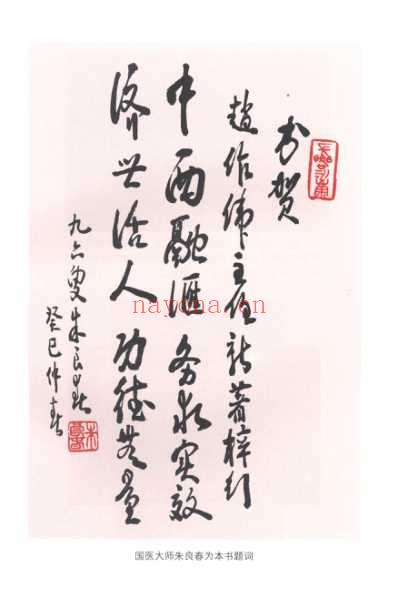 书贺
趙作伟主任新著梓行
中西融滙务求实效
济世活人功德无量
九六叟朱良春
癸巳仲春
nayona.cn
国医大师朱良春为本书题词